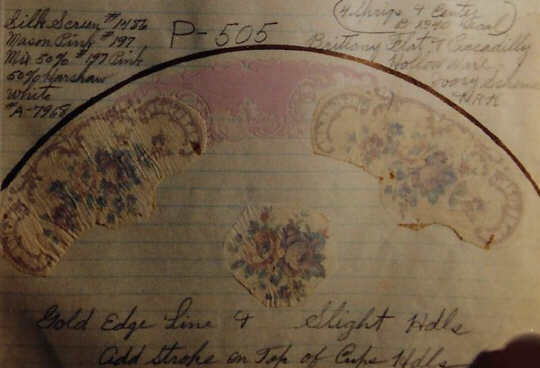 Silk Screen #14186
Mason Pink #197
Mix 50% #197 Pink
50% Harshaw
White
#A-7968
P-505
(4 Sprigs & Center
Brittany Flat & Piccadilly
Hollow Ware
Ivory
Gold Edge Line & Slight Hdls
Add Stroke on Top of Cups Hdls